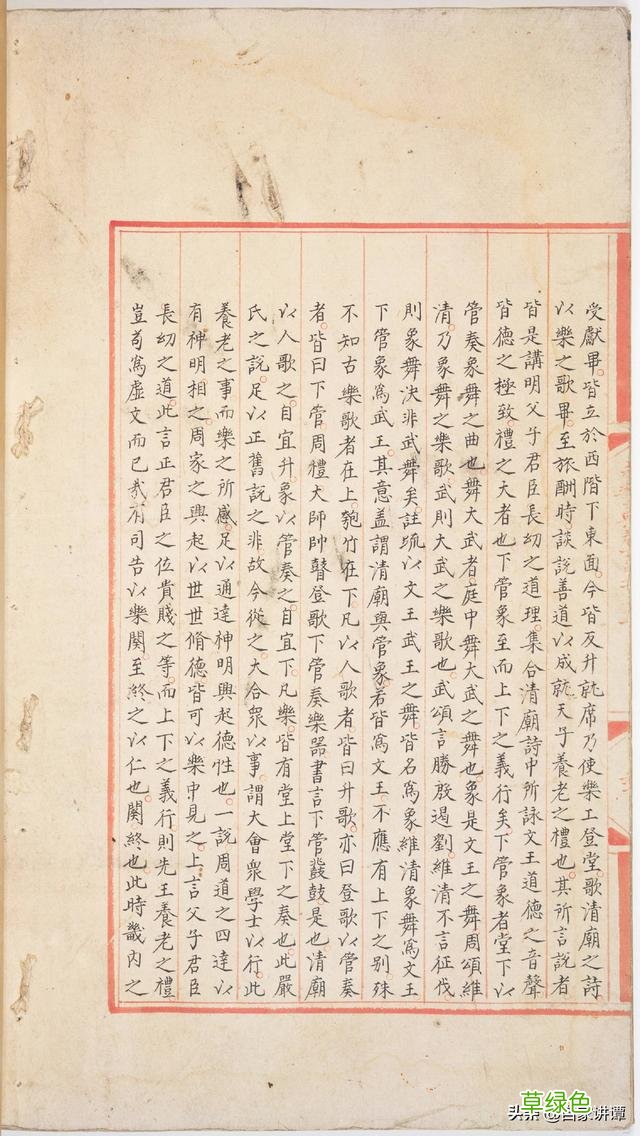 受獻畢皆立於西階下東面今皆反升就席乃使樂工登堂歌清廟之詩
以樂之歌畢至旅酬時談說善道以成就天子養老之禮也其所言說者
皆是講明父子君臣長幼之道理集合清廟詩中所詠文王道德之音聲
皆德之極致禮之大者也下管象至而上下之義行矣下管象者堂下以
管奏象舞之曲也舞大武者庭中舞大武之舞也象是文王之舞周頌維
清乃象舞之樂歌武則大武之樂歌也武頌言勝殷遏劉維清不言征伐
則象舞決非武舞矣註疏以文王武王之舞皆名為象維清象舞為文王
下管象為武王其意盖謂清廟與管象若皆為文王不應有上下之別殊
不知古樂歌者在上匏竹在下凡以人歌者皆曰升歌亦曰登歌以管奏
者皆曰下管周禮大師帥瞽登歌下管奏樂器書言下管鼗鼓是也清廟
以人歌之自宜升象以管奏之自宜下凡樂皆有堂上堂下之奏也此嚴
氏之說足以正舊說之非故今從之大合眾以事謂大會眾學士以行此
養老之事而樂之所感足以通達神明興起德性也一說周道之四達以
有神明相之周家之興起以世世脩德皆可以樂中見之上言父子君臣
長幼之道此言正君臣之位貴賤之等而上下之義行則先王養老之禮
豈苟為虛文而已哉有司告以樂闋至終之以仁也闋終也此時畿內之
头条 @百家讲谭
草绿色